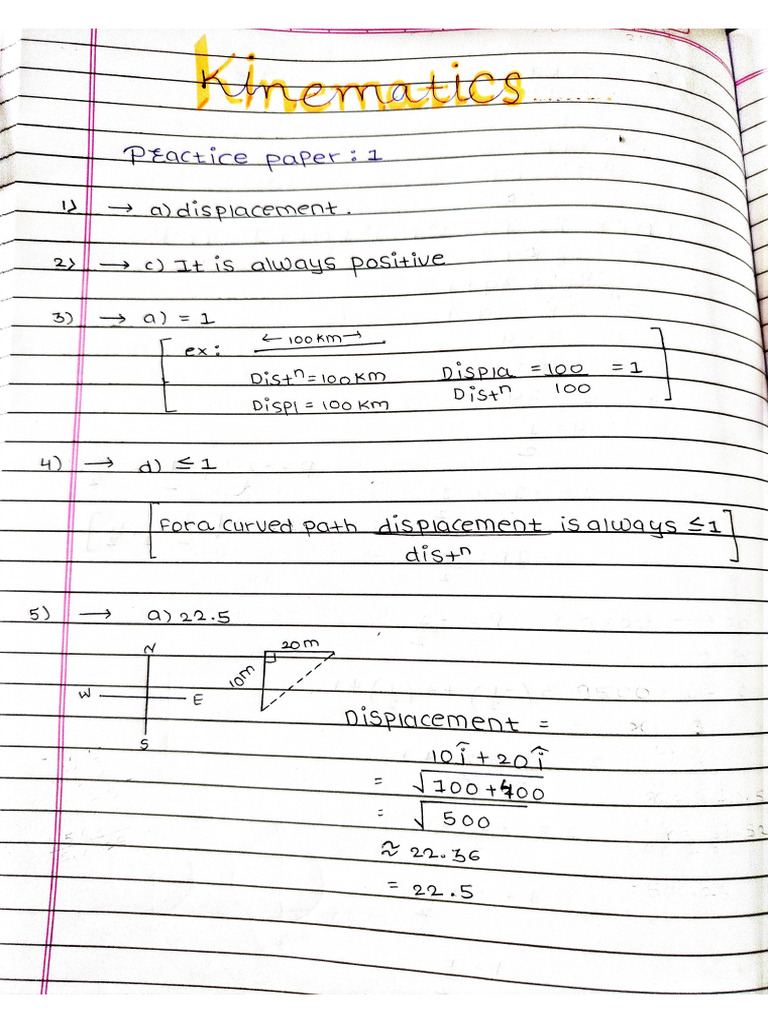 Kinematics........
Practice paper : 1
1) → a) displacement.
2) → c) It is always positive
3) → a) = 1
ex: ← 100 km →
Distⁿ = 100 km Displa = 100 = 1
Displ = 100 km Distⁿ 100
4) → d) ≤ 1
For a curved path displacement is always ≤ 1
distⁿ
5) → a) 22.5
N 20m
10m
W E
S
Displacement =
10î + 20î
= √100 + 400
= √500
≈ 22.36
= 22.5